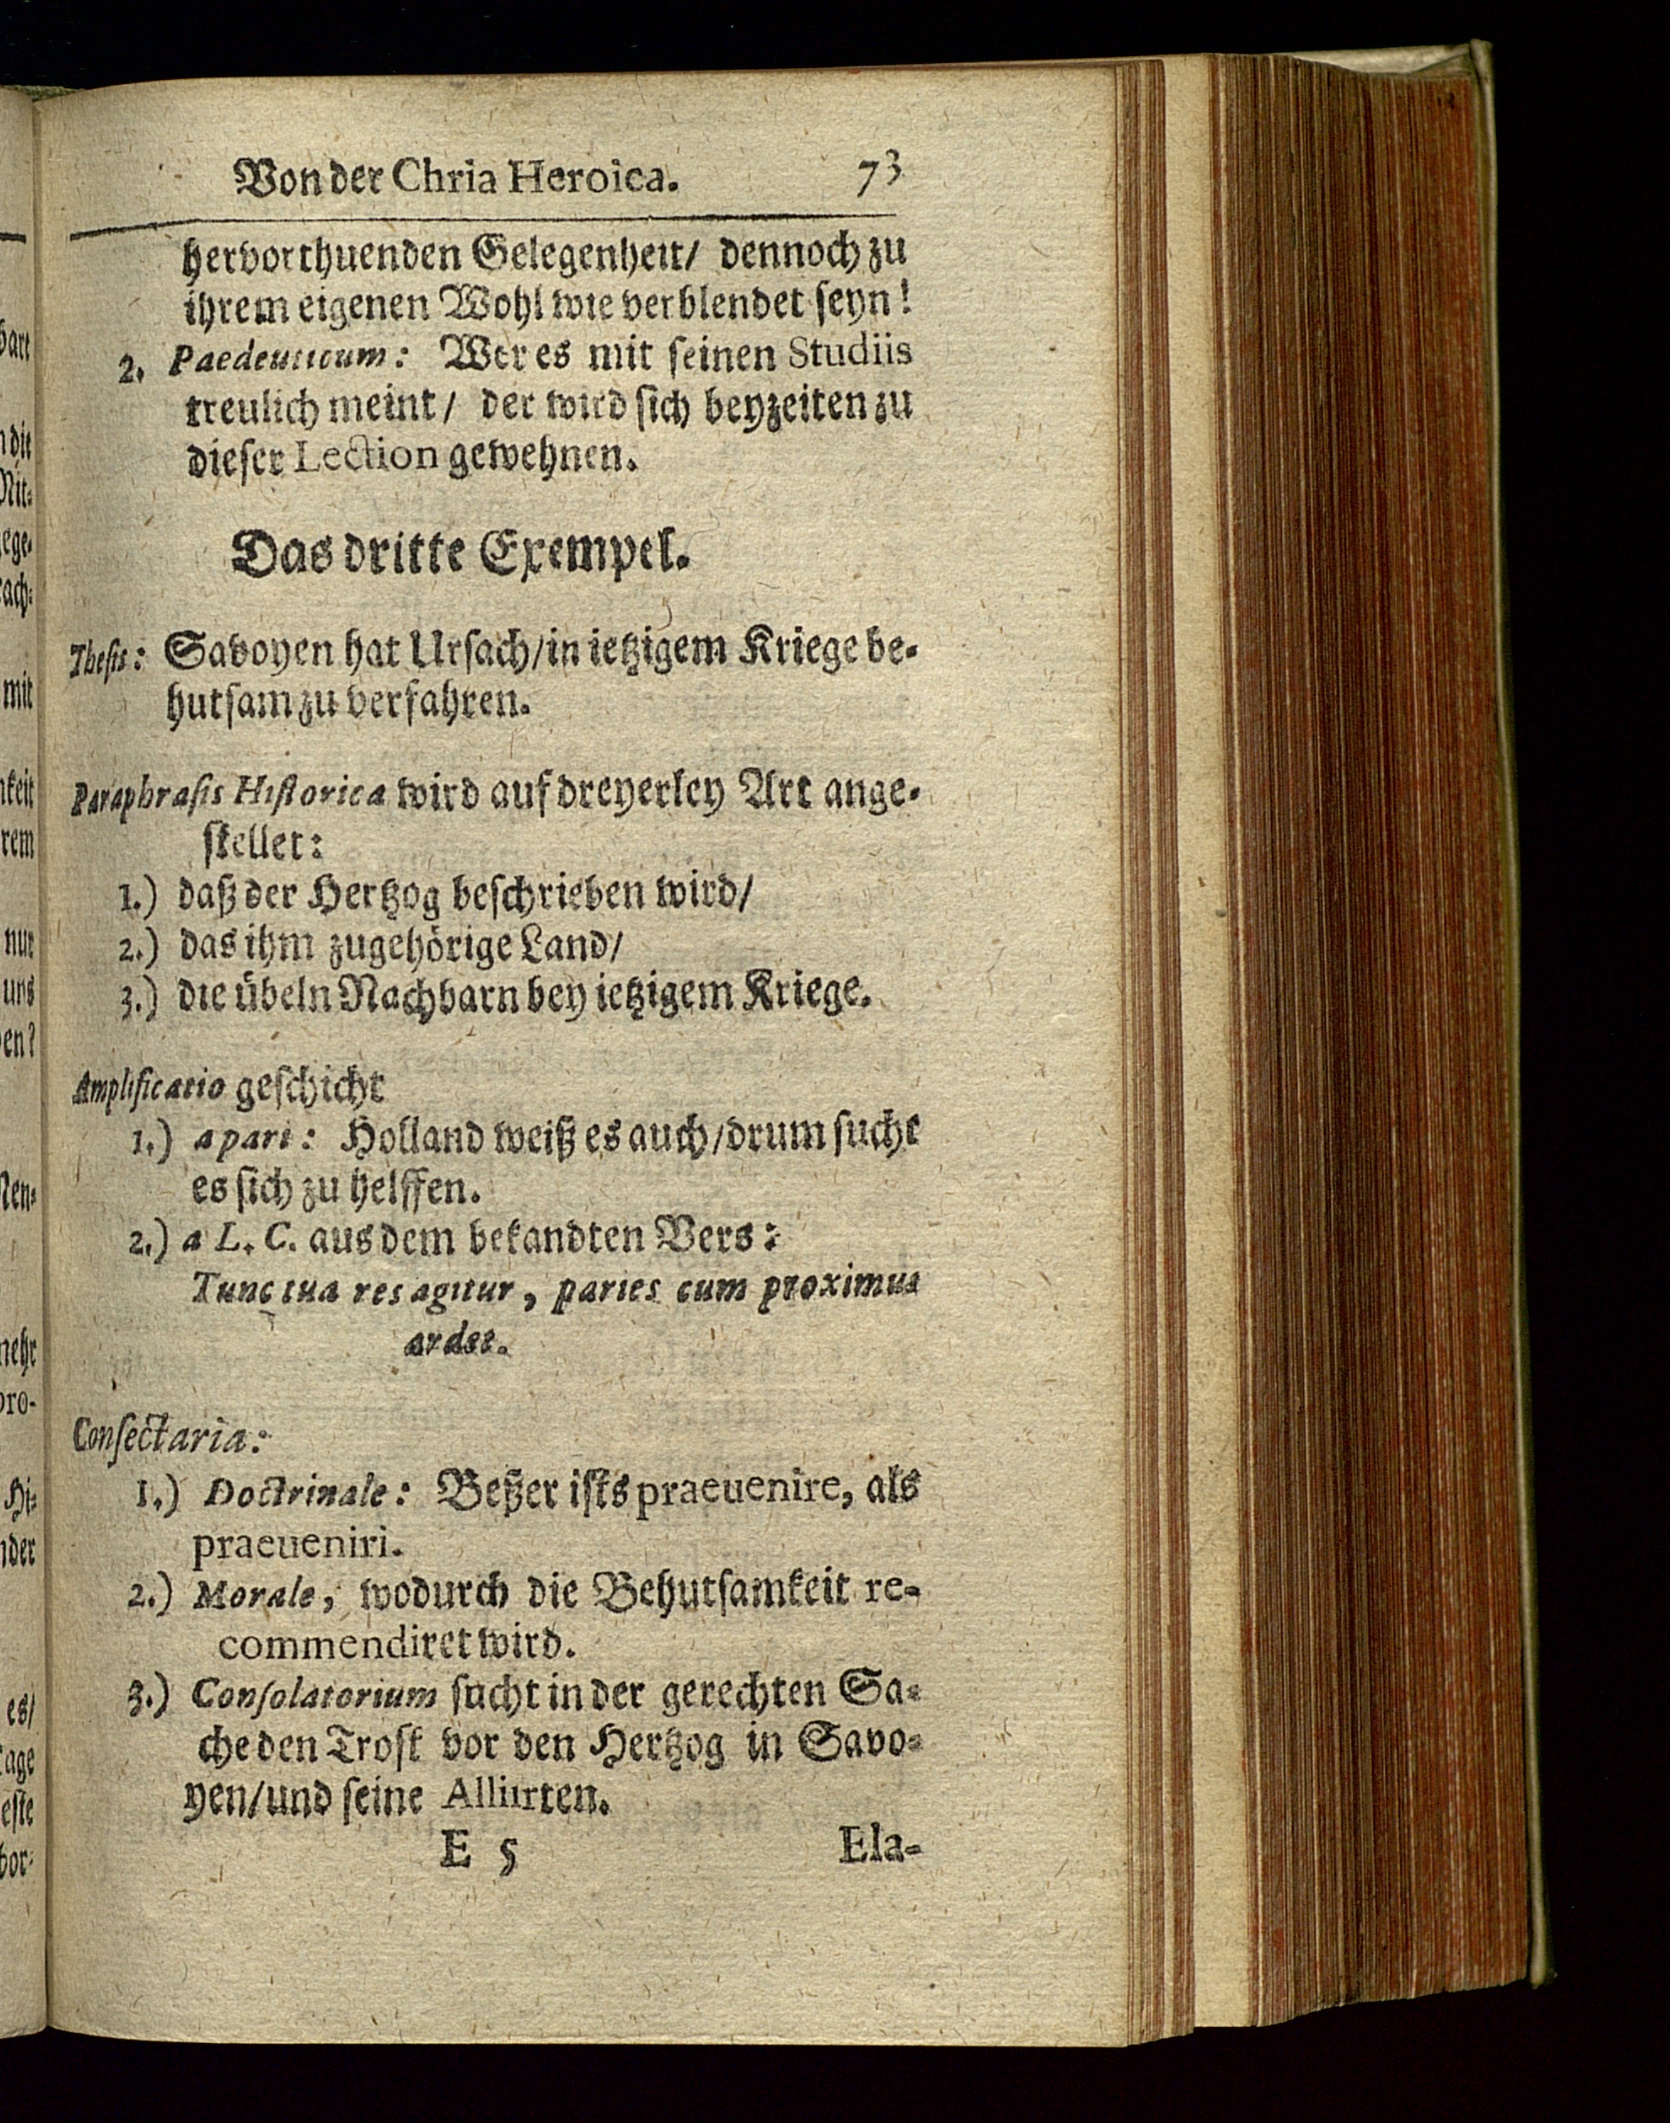 Von der Chria Heroica. 73
hervorthuenden Gelegenheit/ dennoch zu
ihrem eigenen Wohl wie verblendet seyn!
2. Paedeuticum: Wer es mit seinen Studiis
treulich meint/ der wird sich beyzeiten zu
dieser Lection gewehnen.
Das dritte Exempel.
Thesis: Savoyen hat Ursach/in ietzigem Kriege be-
hutsam zu verfahren.
Paraphrasis Historica wird auf dreyerley Art ange-
stellet:
1.) daß der Hertzog beschrieben wird/
2.) das ihm zugehörige Land/
3.) die übeln Nachbarn bey ietzigem Kriege.
Amplificatio geschicht
1.) a pari: Holland weiß es auch/drum sucht
es sich zu helffen.
2.) a L. C. aus dem bekandten Vers:
Tunc tua res agitur, paries cum proximus
ardet.
Consectaria:
1.) Doctrinale: Beßer ists praeuenire, als
praeueniri.
2.) Morale, wodurch die Behutsamkeit re-
commendiret wird.
3.) Consolatorium sucht in der gerechten Sa-
che den Trost vor den Hertzog in Savo-
yen/und seine Alliirten.
E 5 Ela-